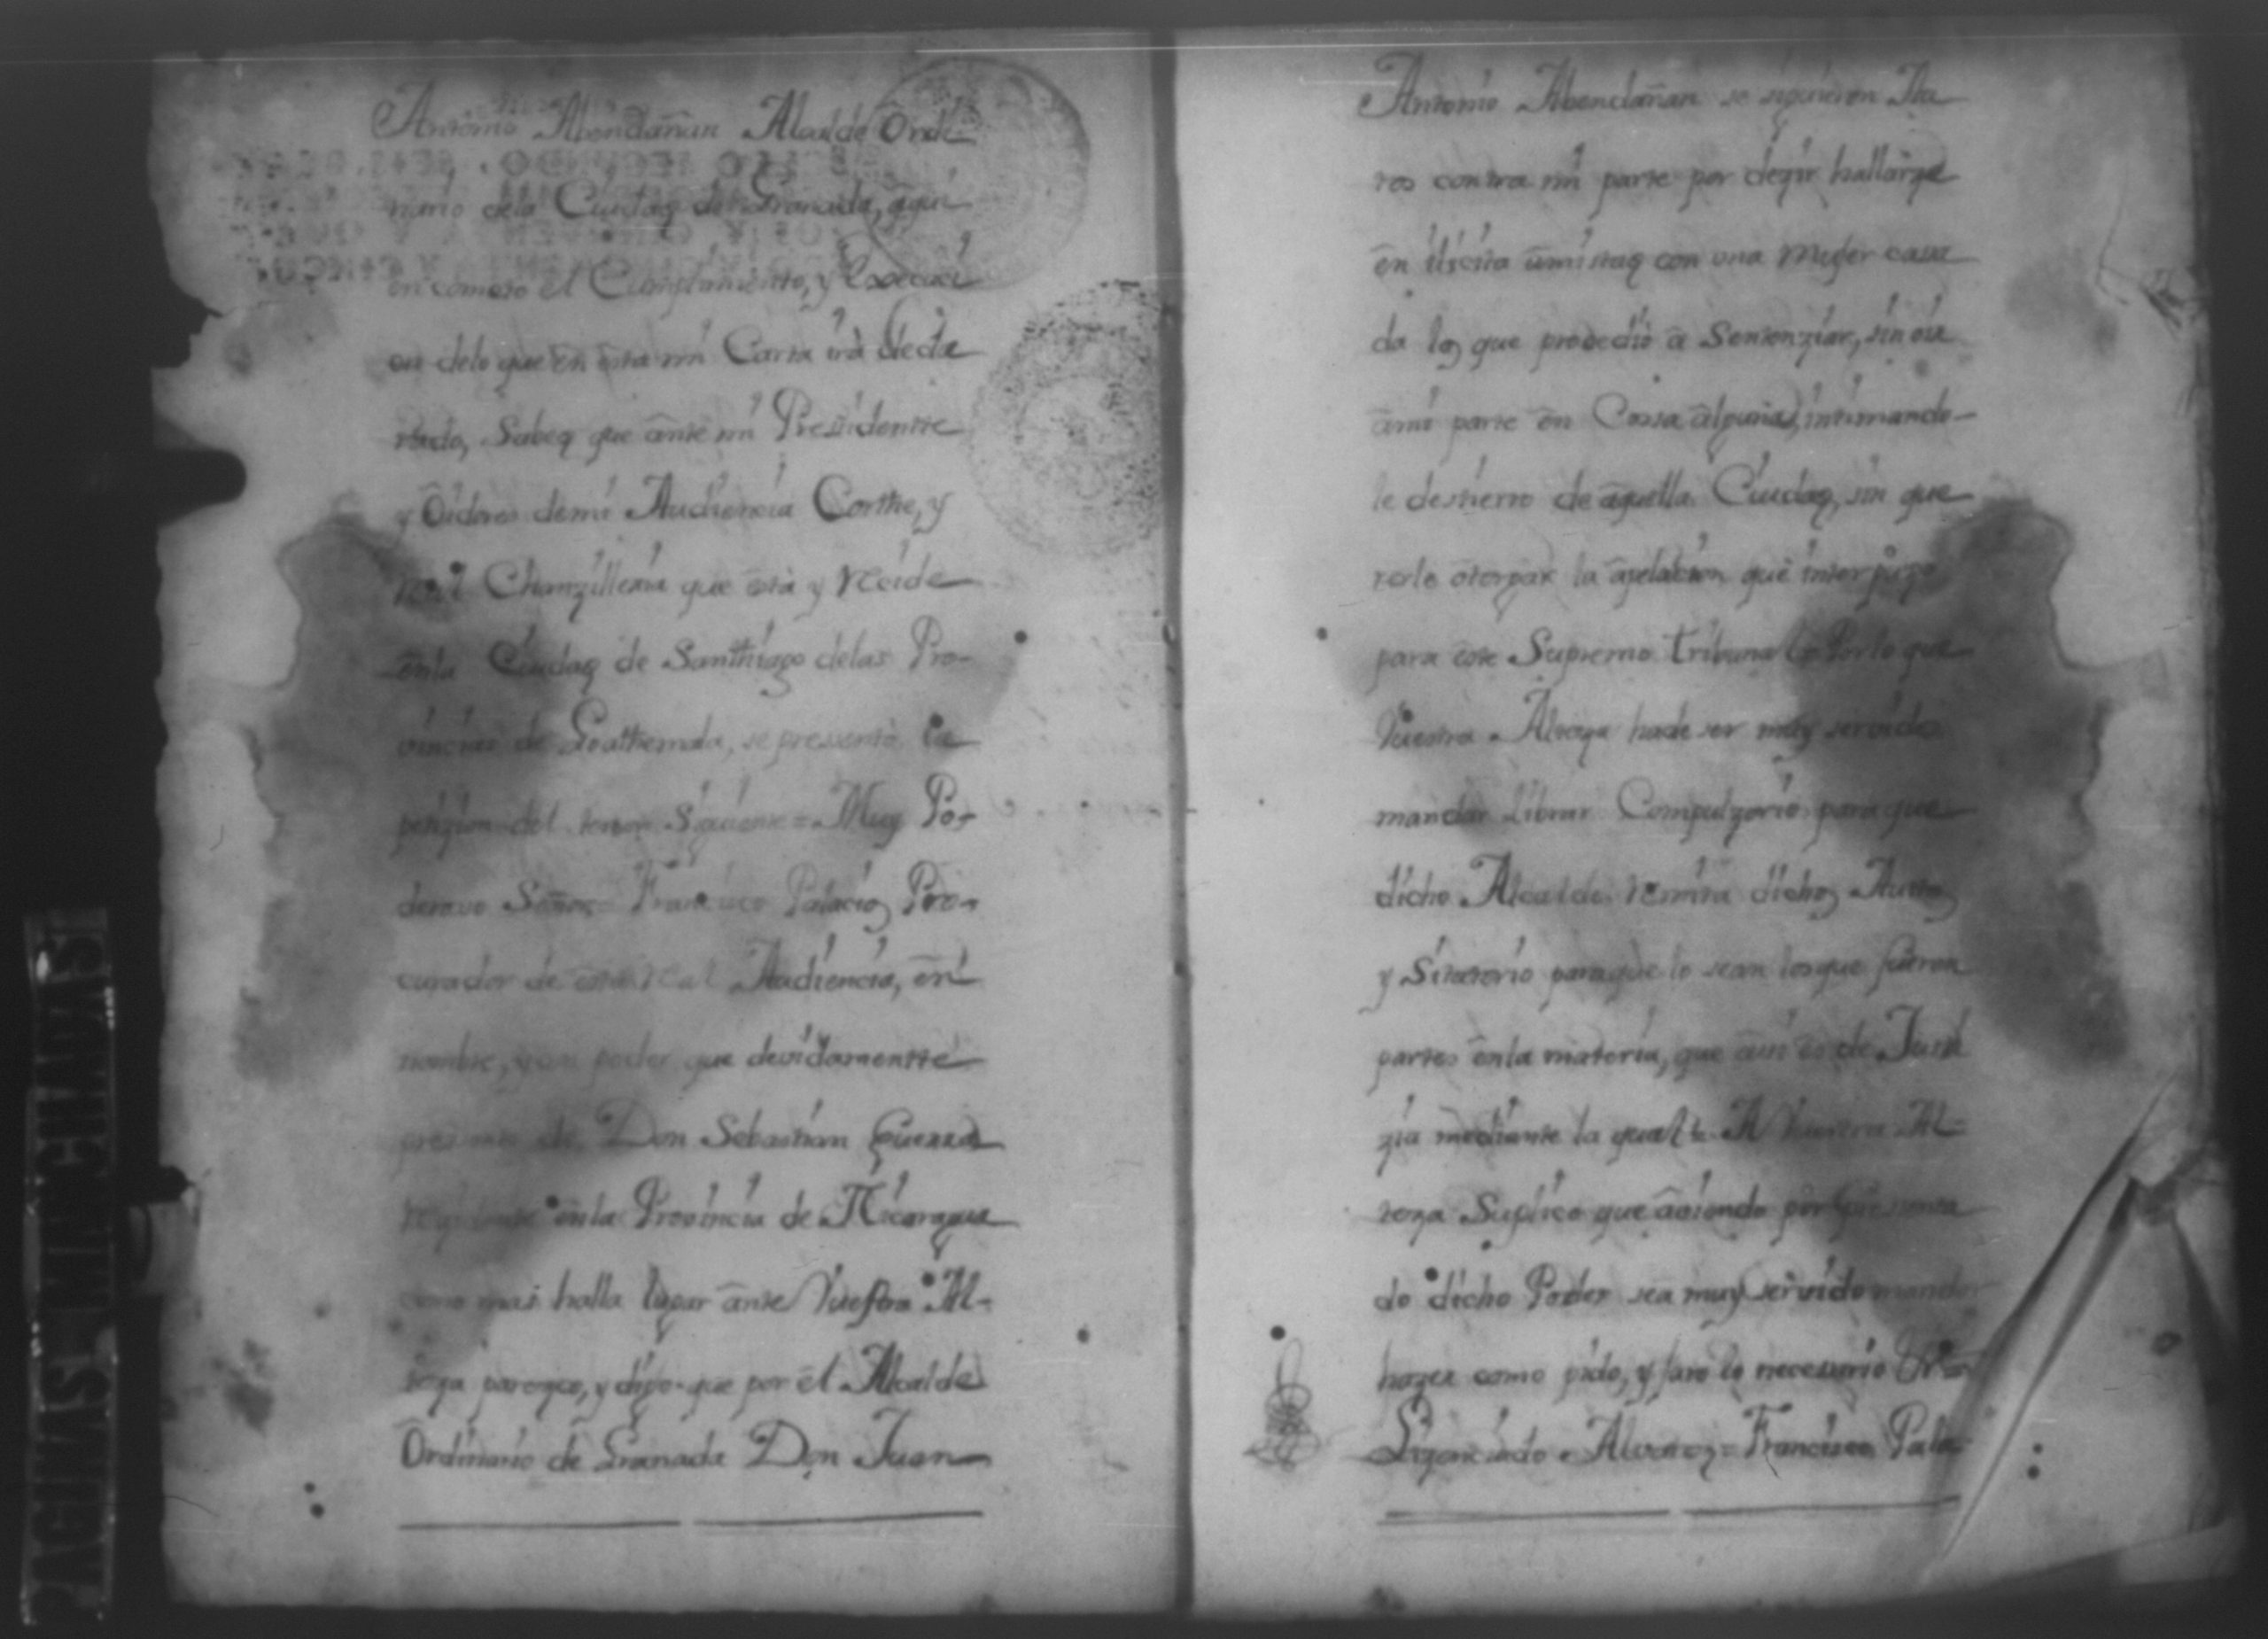 Antonio Abendañan Alcalde Ordi-
nario dela Ciudad de Granada, aquí
en cometo el Cumplimiento, y Execuci
on delo que en esta mi Carta irá decla
rado, Sabed que ante mi Presidentte
y Oidores demi Audiencia Cortte, y
real Chanzilleria que está y Recide
enla Ciudad de Santtiago delas Pro-
vincias de Goathemala, se presento la
petizion del tenor Siguiente = Muy Po-
deroso Señor = Francisco Palacios Pro-
curador de esta real Audiencia, en
nombre, y con poder que devidamentte
presento de Don Sebastian Guerra
Residente enla Provincia de Nicaragua
como mas halla lugar ante Vuestra Al-
teza parezco, y digo que por el Alcalde
Ordinario de Granada Don Juan
Antonio Abendañan se siguieron Au
tos contra mi parte por dezir hallarze
en ilicita amistad con una Muger casa
da los que prosedio a Sentenziar, sin oir
ami parte en Cossa alguna, intimando-
le destierro de aquella Ciudad, sin que
rerle otorgar la apelacion que interpuzo
para este Supremo tribunal = Por lo que
Vuestra Alteza hade ser muy servido
mandar Librar Compulzorio para que
dicho Alcalde remita dichos Autos
y Sitatorio paraque lo sean losque fueron
partes enla materia, que asi es de Justi
zia mediante la qual = A Vuestra Al=
teza Suplico que aviendo por presenta
do dicho Poder sea muy servido mandar
hazer como pido, y juro lo necessario
Lizenciado Alvarez = Francisco Pala-
PAGINAS MANCHADAS